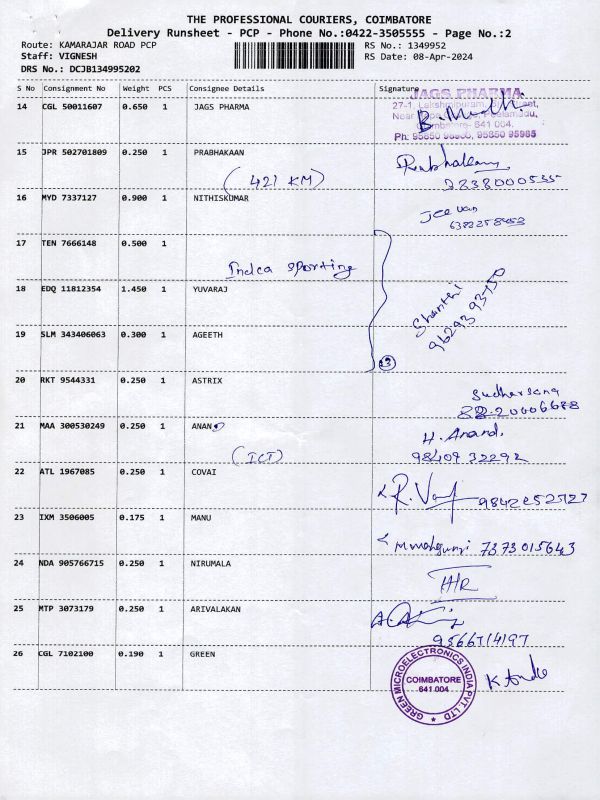 THE PROFESSIONAL COURIERS, COIMBATORE
Delivery Runsheet - PCP - Phone No.:0422-3505555 - Page No.:2
Route: KAMARAJAR ROAD PCP
RS No.: 1349952
Staff: VIGNESH
RS Date: 08-Apr-2024
DRS No.: DCJB134995202
S No Consignment No Weight PCS Consignee Details Signature
14 CGL 50011607 0.650 1 JAGS PHARMA
JAGS PHARMA
27-1, Lakshmipuram,
Near
Coimbatore- 641 004.
Ph: 95850 95985
15 JPR 502701809 0.250 1 PRABHAKAAN
Prabhakaan
(421 KM)
16 MYD 7337127 0.900 1 NITHISKUMAR
Jeevan
17 TEN 7666148 0.500 1
India sporting
18 EDQ 11812354 1.450 1 YUVARAJ
Shanthi
96293 93750
19 SLM 343406063 0.300 1 AGEETH
13
20 RKT 9544331 0.250 1 ASTRIX
Sudharsana
21 MAA 300530249 0.250 1 ANAND
H. Anand.
98409 32292
(ICI)
22 ATL 1967085 0.250 1 COVAI
9842252727
23 IXM 3506005 0.175 1 MANU
7373015643
24 NDA 905766715 0.250 1 NIRUMALA
25 MTP 3073179 0.250 1 ARIVALAKAN
9566714197
26 CGL 7102100 0.190 1 GREEN
GREEN MICROELECTRONICS INDIA PVT. LTD
COIMBATORE
641 004